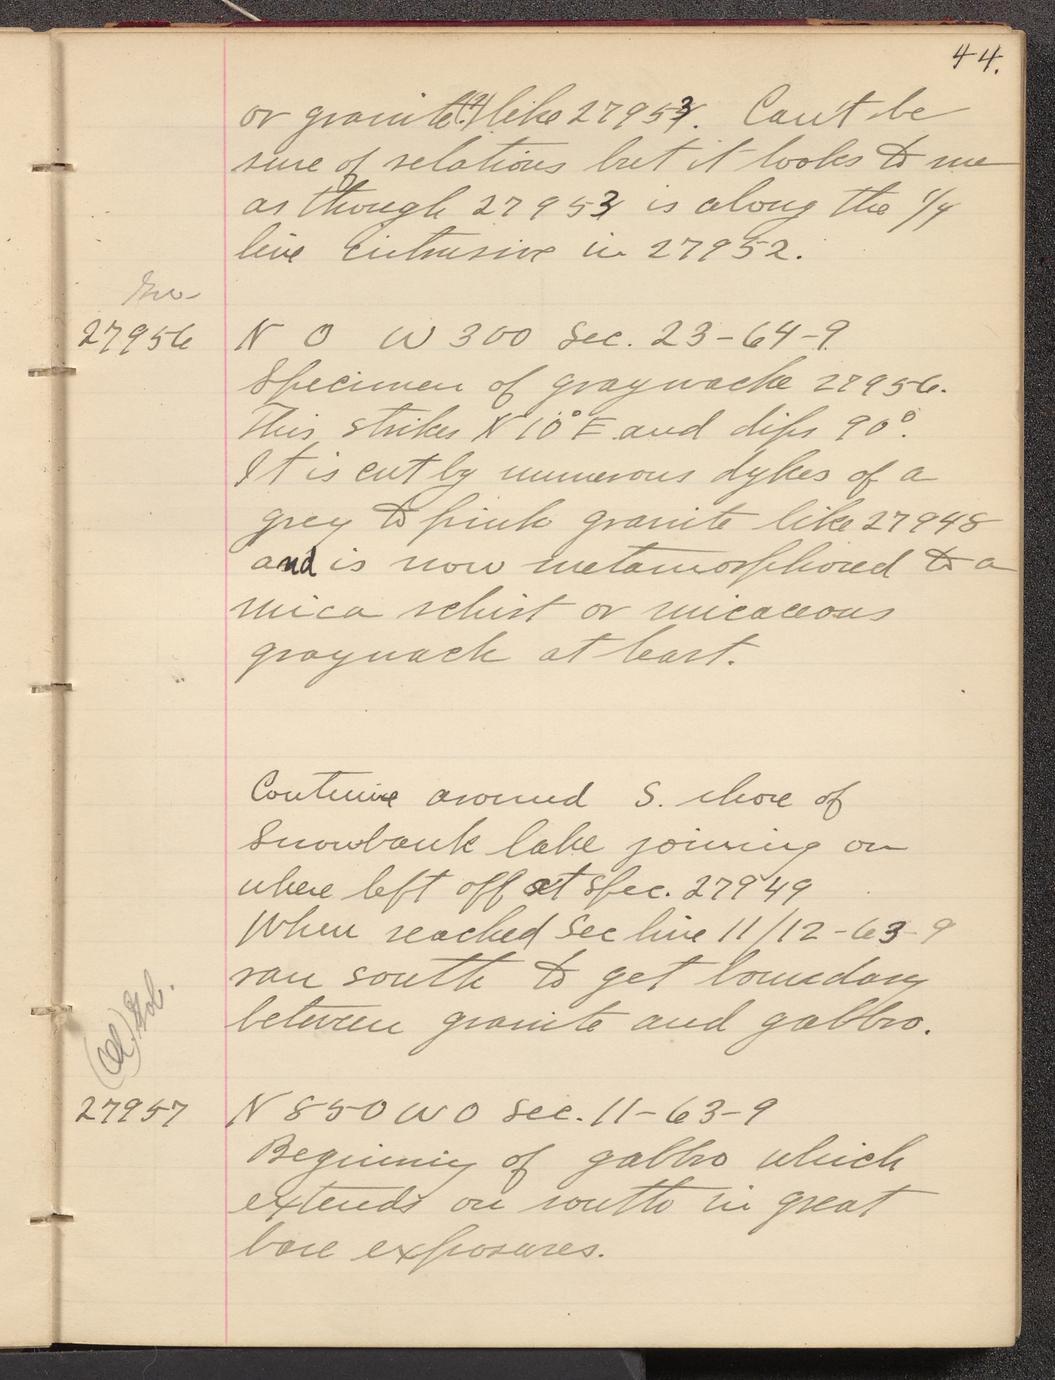 44.
or granite (?) like 27953. Can't be
sure of relations but it looks to me
as though 27953 is along the 1/4
line intrusive in 27952.
27956 N 0 W 300 Sec. 23-64-9.
Specimen of graywacke 27956.
This strikes N 10° E and dips 90°.
It is cut by numerous dykes of a
grey to pink granite like 27948
and is now metamorphosed to a
mica schist or micaceous
graywack at least.
Continue around S. shore of
Snowbank lake joining on
where left off at Spec. 27949
When reached Sec line 11/12-63-9
ran south to get boundary
between granite and gabbro.
(Ol) Gab.
27957 N 850 W 0 Sec. 11-63-9
Beginning of gabbro which
extends on south in great
bare exposures.